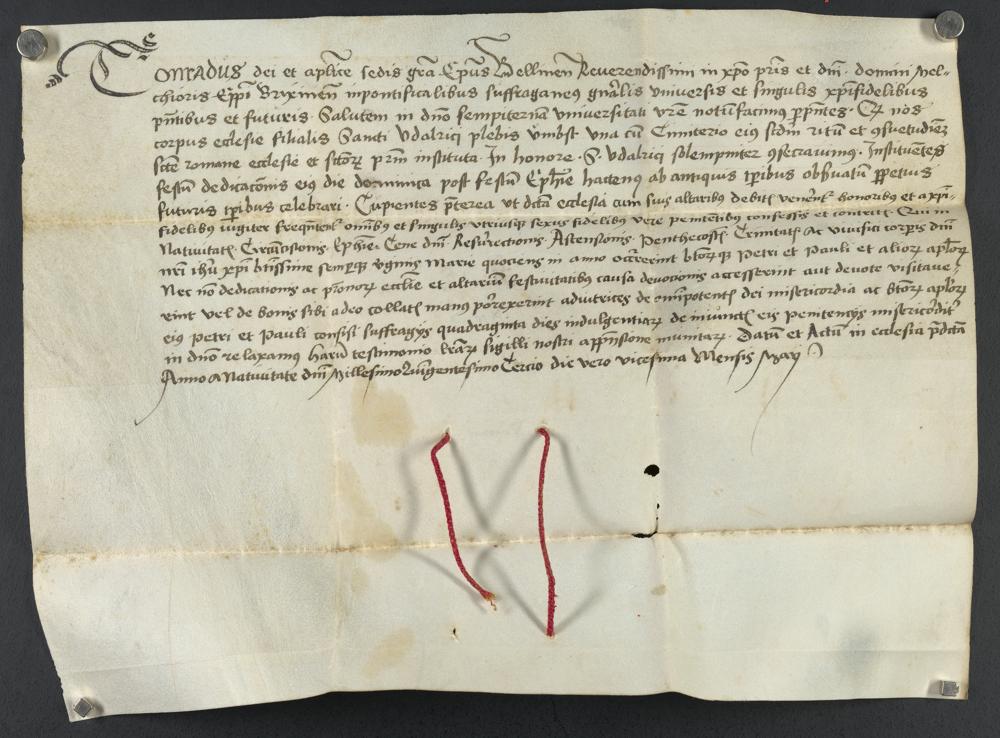 Conradus dei et aplice sedis gra Epus Bellinen Reverendissimi in xpo pris et dni domini Mel-
chioris Eppi Brixinen in pontificalibus suffraganeus gnalis universis et singulis xpifidelibus
pntibus et futuris Salutem in dno sempiternam universitati vre notum facimus p pntes Qz nos
corpus ecclesie filialis Sancti Vdalrici plebis Vmbst vna cu Cimiterio eiq scdm ritu et 9suetudiez
scte romane ecclesie et sctorz prm instituta In honore S. Vdalrici solempniter 9secravimq Instituentes
festu dedicaconis eiq die dominica post festu Ephie hactenus ab antiquis tpribus obsvatu ppetuis
futuris tpribus celebrari Cupientes pterea vt dcta ecclesia cum suis altaribus debitis honoribus et a xpi-
fidelibq iugiter omibq et singulis vtriusque sexus fidelibq vere penitentibq confessis et contritis Qui in
Nativitatis Circucisionis Ephie Cene dni Resurrectionis Ascensionis Penthecostes Trinitatis Ac vivifici corpis dni
nri ihu xpi btissime semperqz vginis Marie quociens in anno btorqz Petri et Pauli et aliorz aplorz
Nec no dedicationis ac pronorz ecclie et altariu festivitatibus causa devotionis accesserint aut devote visitave-
rint vel de bonis sibi a deo collatis manus porrexerint adiutrices de omipotentis dei misericordia ac btorz aplorz
eiq Petri et Pauli confisi suffragys quadraginta dies indulgentiarz de iniunctis eis penitencys misericorditer
in dno relaxamus haru testimonio lrarz sigilli nostri appensione munitarz Datu et Actu in ecclesia pdicta
Anno a Nativitate dni Millesimo Quingentesimo Tercio die vero vicesima Mensis May